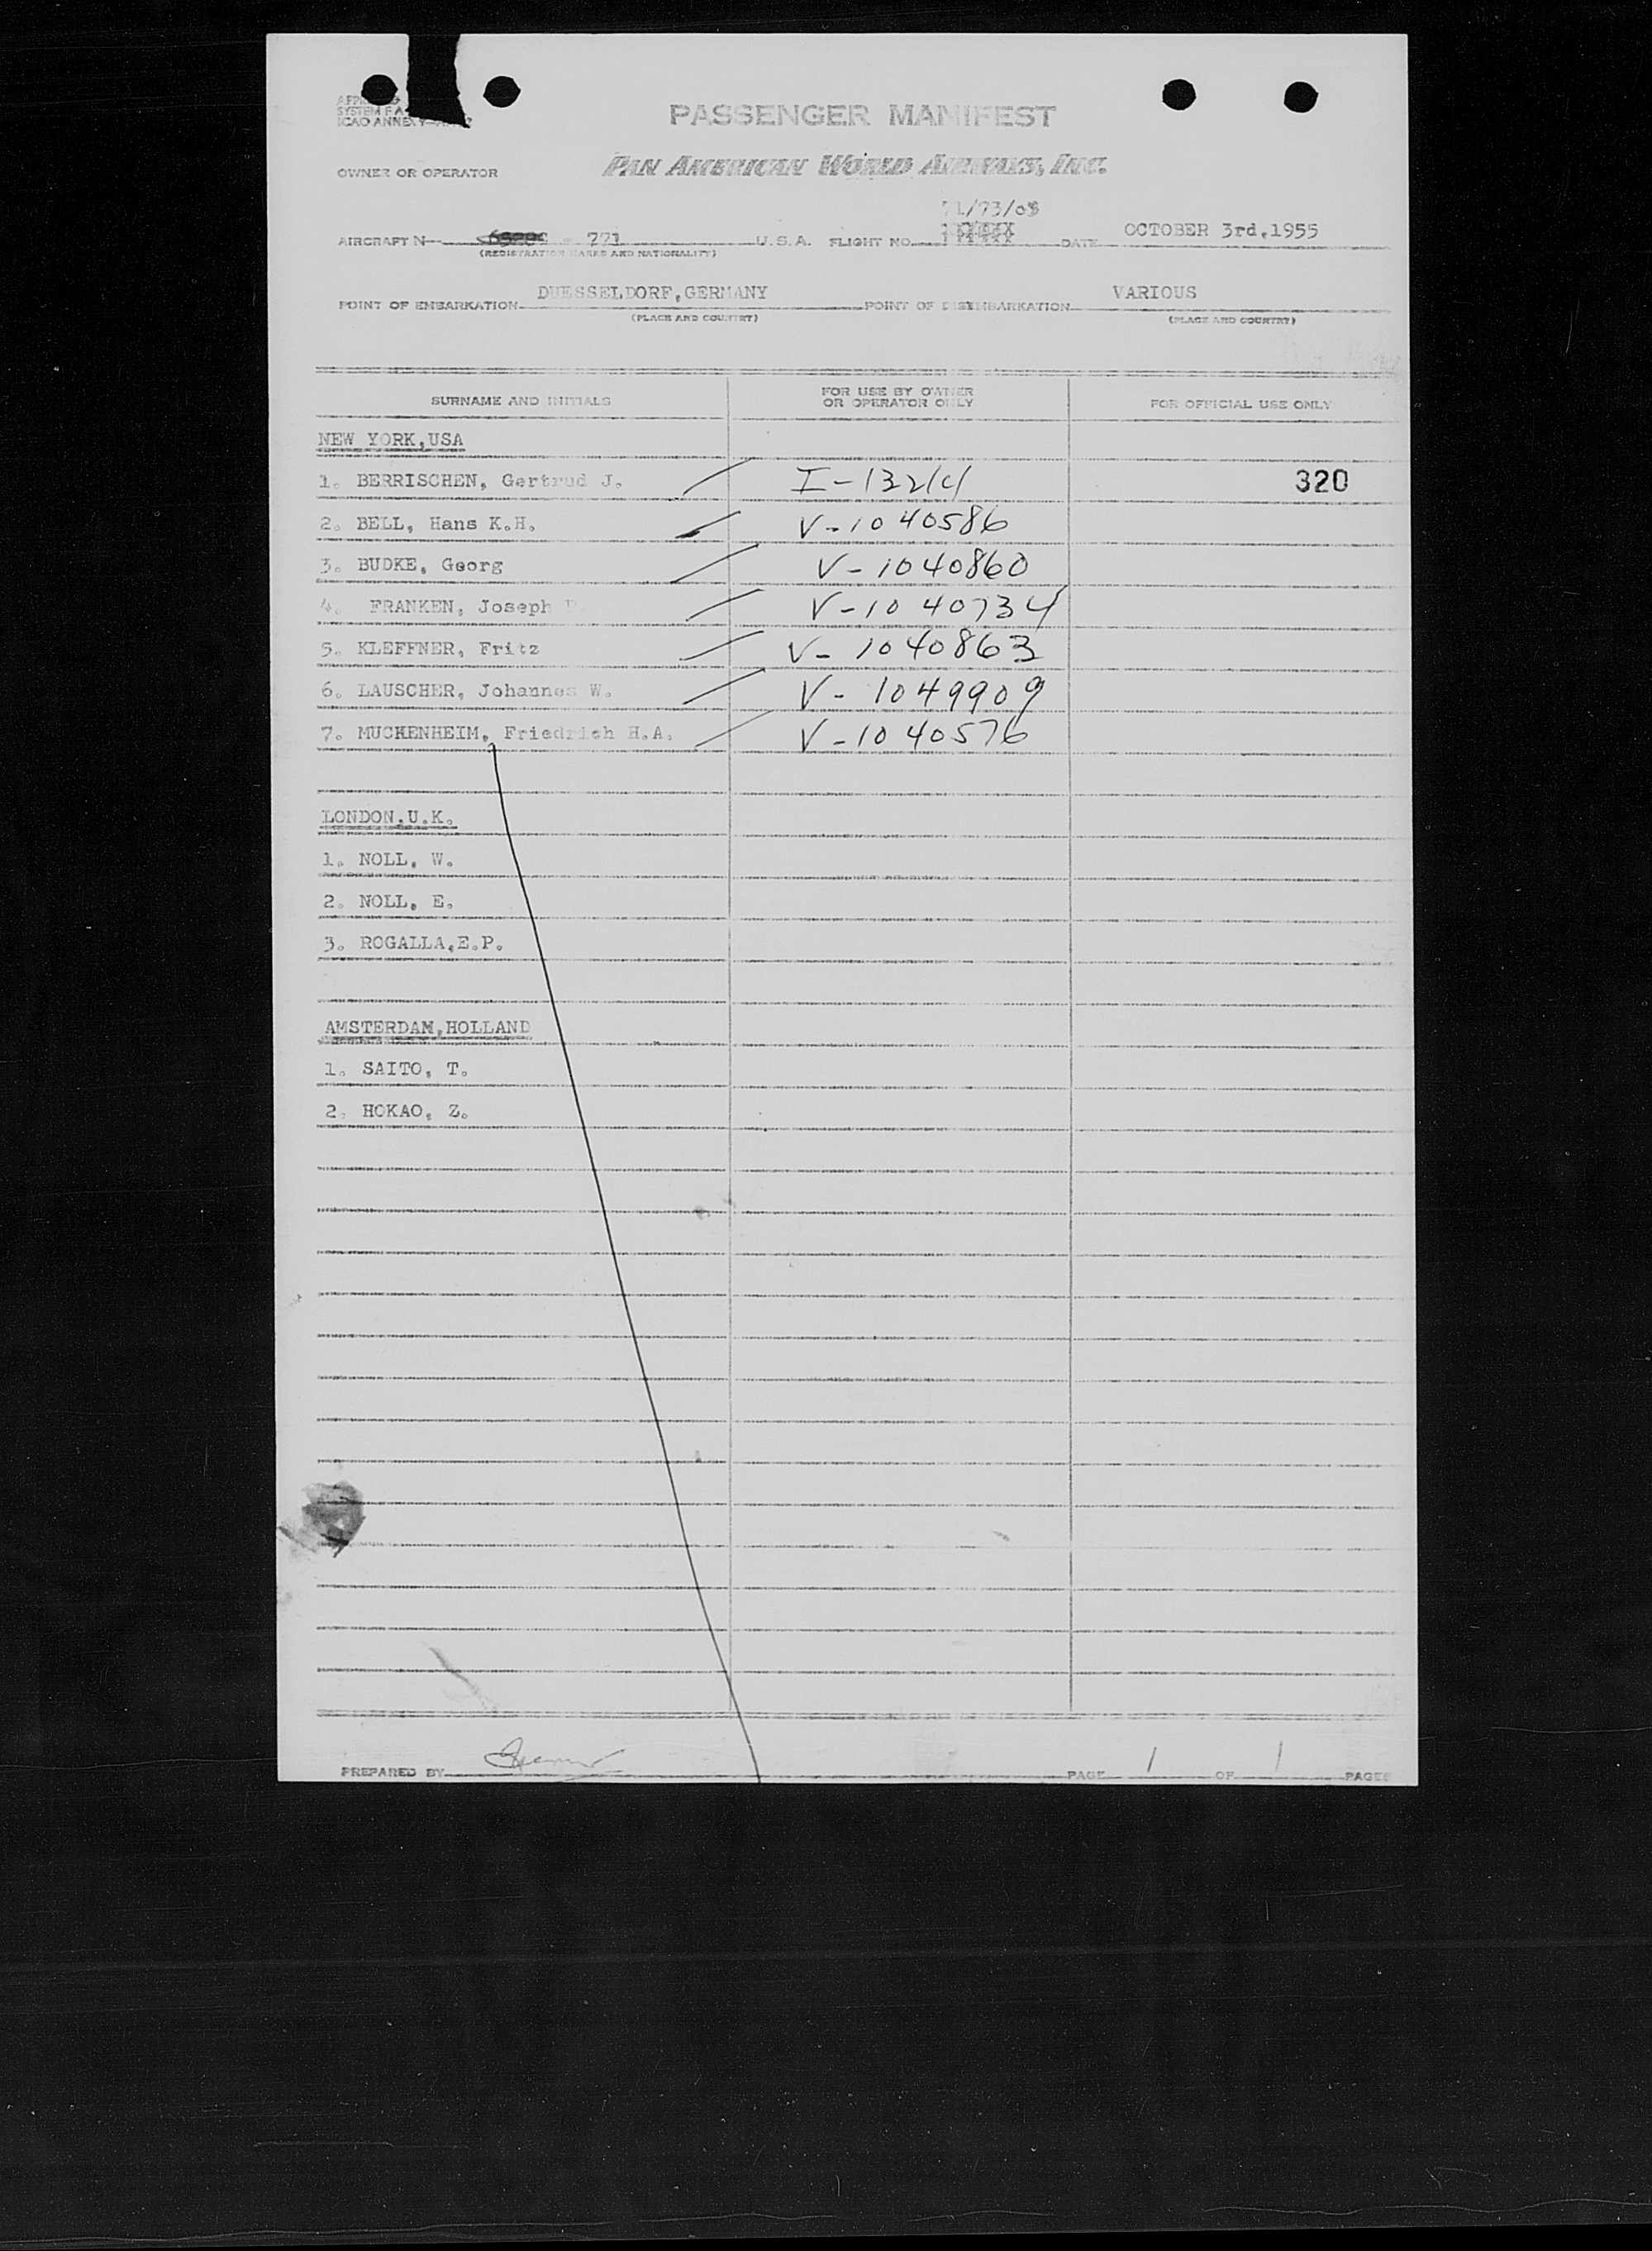 SYSTEM F A
ICAO ANNEX
PASSENGER MANIFEST
OWNER OR OPERATOR
PAN AMERICAN WORLD AIRWAYS, INC.
71/73/03
AIRCRAFT N 771 U.S.A. FLIGHT NO. DATE OCTOBER 3rd,1955
(REGISTRATION MARKS AND NATIONALITY)
POINT OF EMBARKATION DUESSELDORF,GERMANY POINT OF DISEMBARKATION VARIOUS
(PLACE AND COUNTRY) (PLACE AND COUNTRY)
SURNAME AND INITIALS FOR USE BY OWNER OR OPERATOR ONLY FOR OFFICIAL USE ONLY
NEW YORK,USA
1. BERRISCHEN, Gertrud J. I-13214 320
2. BELL, Hans K.H. V-1040586
3. BUDKE, Georg V-1040860
4. FRANKEN, Joseph V-1040734
5. KLEFFNER, Fritz V-1040863
6. LAUSCHER, Johannes W. V-1049909
7. MUCKENHEIM, Friedrich H.A. V-1040576
LONDON,U.K.
1. NOLL, W.
2. NOLL, E.
3. ROGALLA,E.P.
AMSTERDAM,HOLLAND
1. SAITO, T.
2. HOKAO, Z.
PREPARED BY PAGE 1 OF 1 PAGES